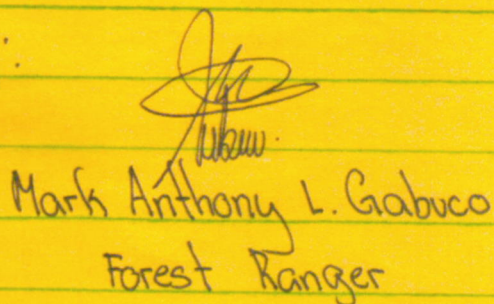 Mark Anthony L. Gabuco
Forest Ranger